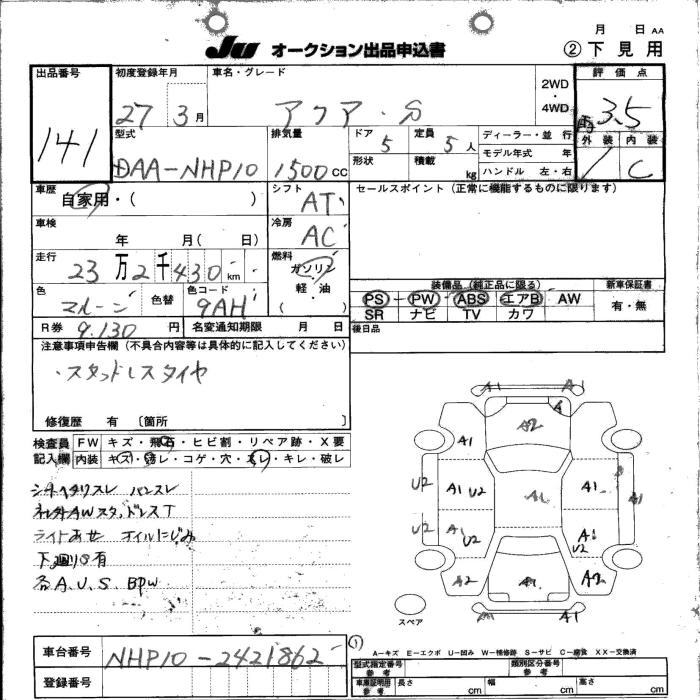 月 日 AA
JU オークション出品申込書 ② 下見用
出品番号 初度登録年月 車名・グレード 2WD・4WD 評価点
141 27 3月 アクア・S 3.5
型式 排気量 ドア 定員 ディーラー・並行 外装 内装
DAA-NHP10 1500cc 5 5人 モデル年式 年 C
形状 積載 kg ハンドル 左・右
車歴 シフト セールスポイント (正常に機能するものに限ります)
自家用・( ) AT
車検 冷房
年 月( 日) AC
走行 燃料
23万2千430km ガソリン
軽・油
( )
色 色替 色コード
マルーン 9AH
装備品 (純正品に限る) 新車保証書
PS PW ABS エアB AW 有・無
SR ナビ TV カワ
R券 9.130円 名変通知期限 月 日 後日品
注意事項申告欄 (不具合内容等は具体的に記入してください)
・スタッドレスタイヤ
修復歴 有 〔箇所 〕
検査員記入欄 FW キズ・飛石・ヒビ割・リペア跡・X要
内装 キズ・汚レ・コゲ・穴・スレ・キレ・破レ
シートヘタリスレ ハンスレ
ネレ外AWスタッドレスT
ライトあせ オイルにじみ
下廻りS有
各A.U.S. BPW
A1 A1
A
A2
A1
U2 A1 U2 A1 A1 A1
U2 A1 U2 A1 U2
A2 A1 A2
A1 A1
スペア
車台番号 NHP10-2421862
登録番号
① A-キズ E-エクボ U-凹み W-補修跡 S-サビ C-腐食 XX-交換済
型式指定番号 参考 類別区分番号 参考
車庫証明用 参考 長さ cm 幅 cm 高さ cm